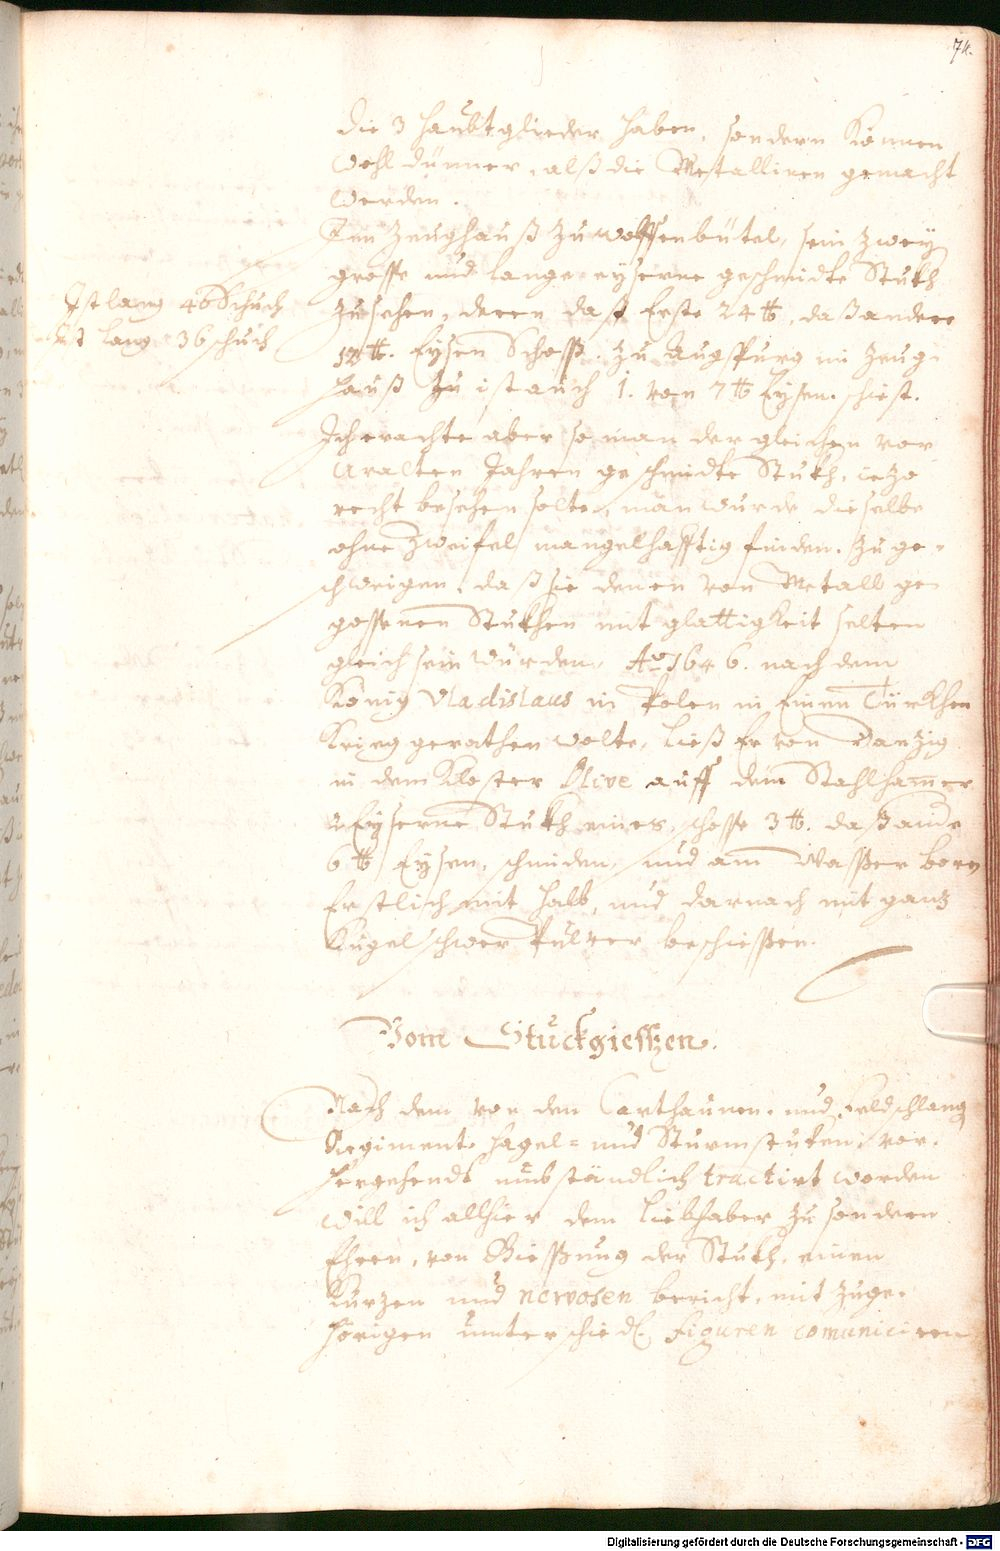 74.
die 3 haubtglieder haben, sondern können
wohl dünner, alß die Metallinen gemacht
werden.
Im Zeughauß zu Wolffenbütel, sein zwey
grosse und lange eyserne geschmidte Stukh
Ist lang 46 Schuch
zusehen, deren daß Erste 24 ℔, daß andere
Ist lang 36 schuch
℔. Eysen Schoß. zu Augspurg im Zeug-
hauß zu ist auch 1. von 7 ℔ Eysen. schiest.
Ich erachte aber so man der gleichen vor
Uralten Jahren geschmidte Stukh, iezo
recht besehen solte, man würde dieselbe
ohne Zweifel mangelhafftig finden. zu ge-
schweigen, daß sie denen von Metall ge-
gossenen Stukhen mit glattigkeit selten
gleich sein würden, Aō 1646. nach dem
König Vladislaus in Polen in Einen Türkhen
Krieg gerathen wolte, ließ Er von Danzig
in dem Kloster Olive auff dem Stahlham̄er
2 Eyserne Stukh eines, schosse 3 ℔. daß ander
6 ℔ Eysen, schmiden, und am Wasser
Erstlich mit halb, und darnach mit ganz
Kugel schwer Pulver beschiessen.
Vom Stuckgiessen.
Nach dem von den Carthaunen, und Feldschlang
Regiment, hagel- und Sturmstuken, vor-
hergehendt umbständlich tractirt worden
will ich allhier dem Liebhaber zu sondern
Ehren, von Giessung der Stukh, einen
Kurzen und nervosen bericht, mit zuge-
hörigen unterschiedl. figuren comuniciren
Digitalisierung gefördert durch die Deutsche Forschungsgemeinschaft - DFG